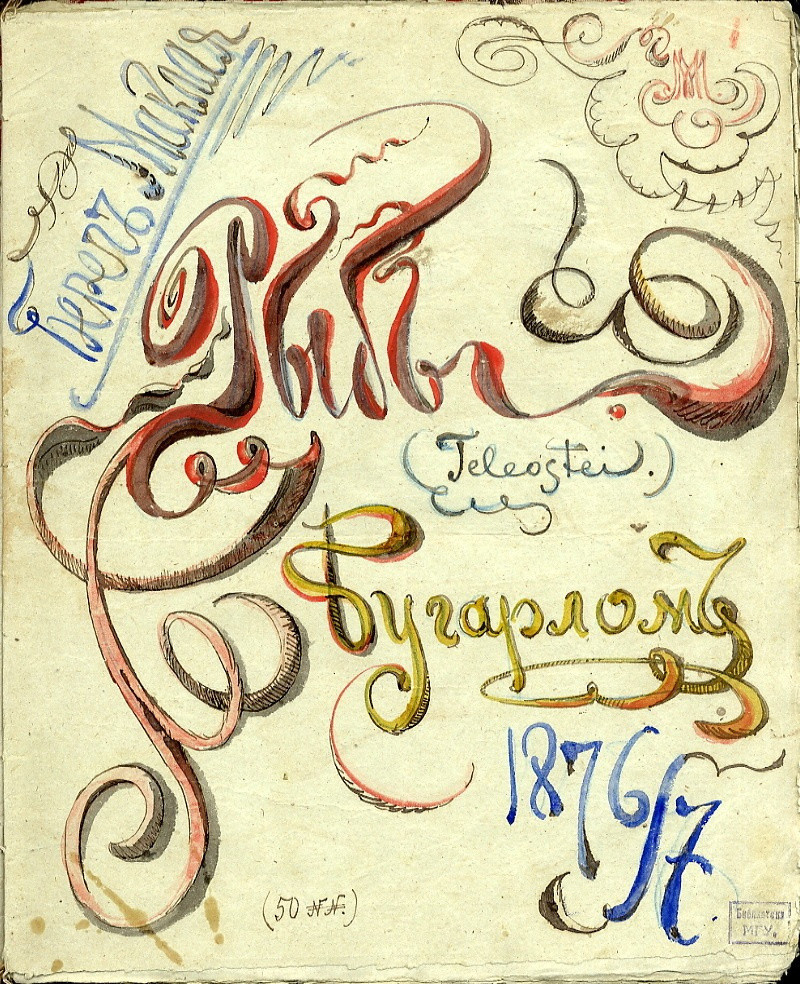 Берегъ Маклая
ММ
Рыбы
(Teleostei.)
Бугарломъ
1876/7
(50 NN.)
Библиотека
МГУ.